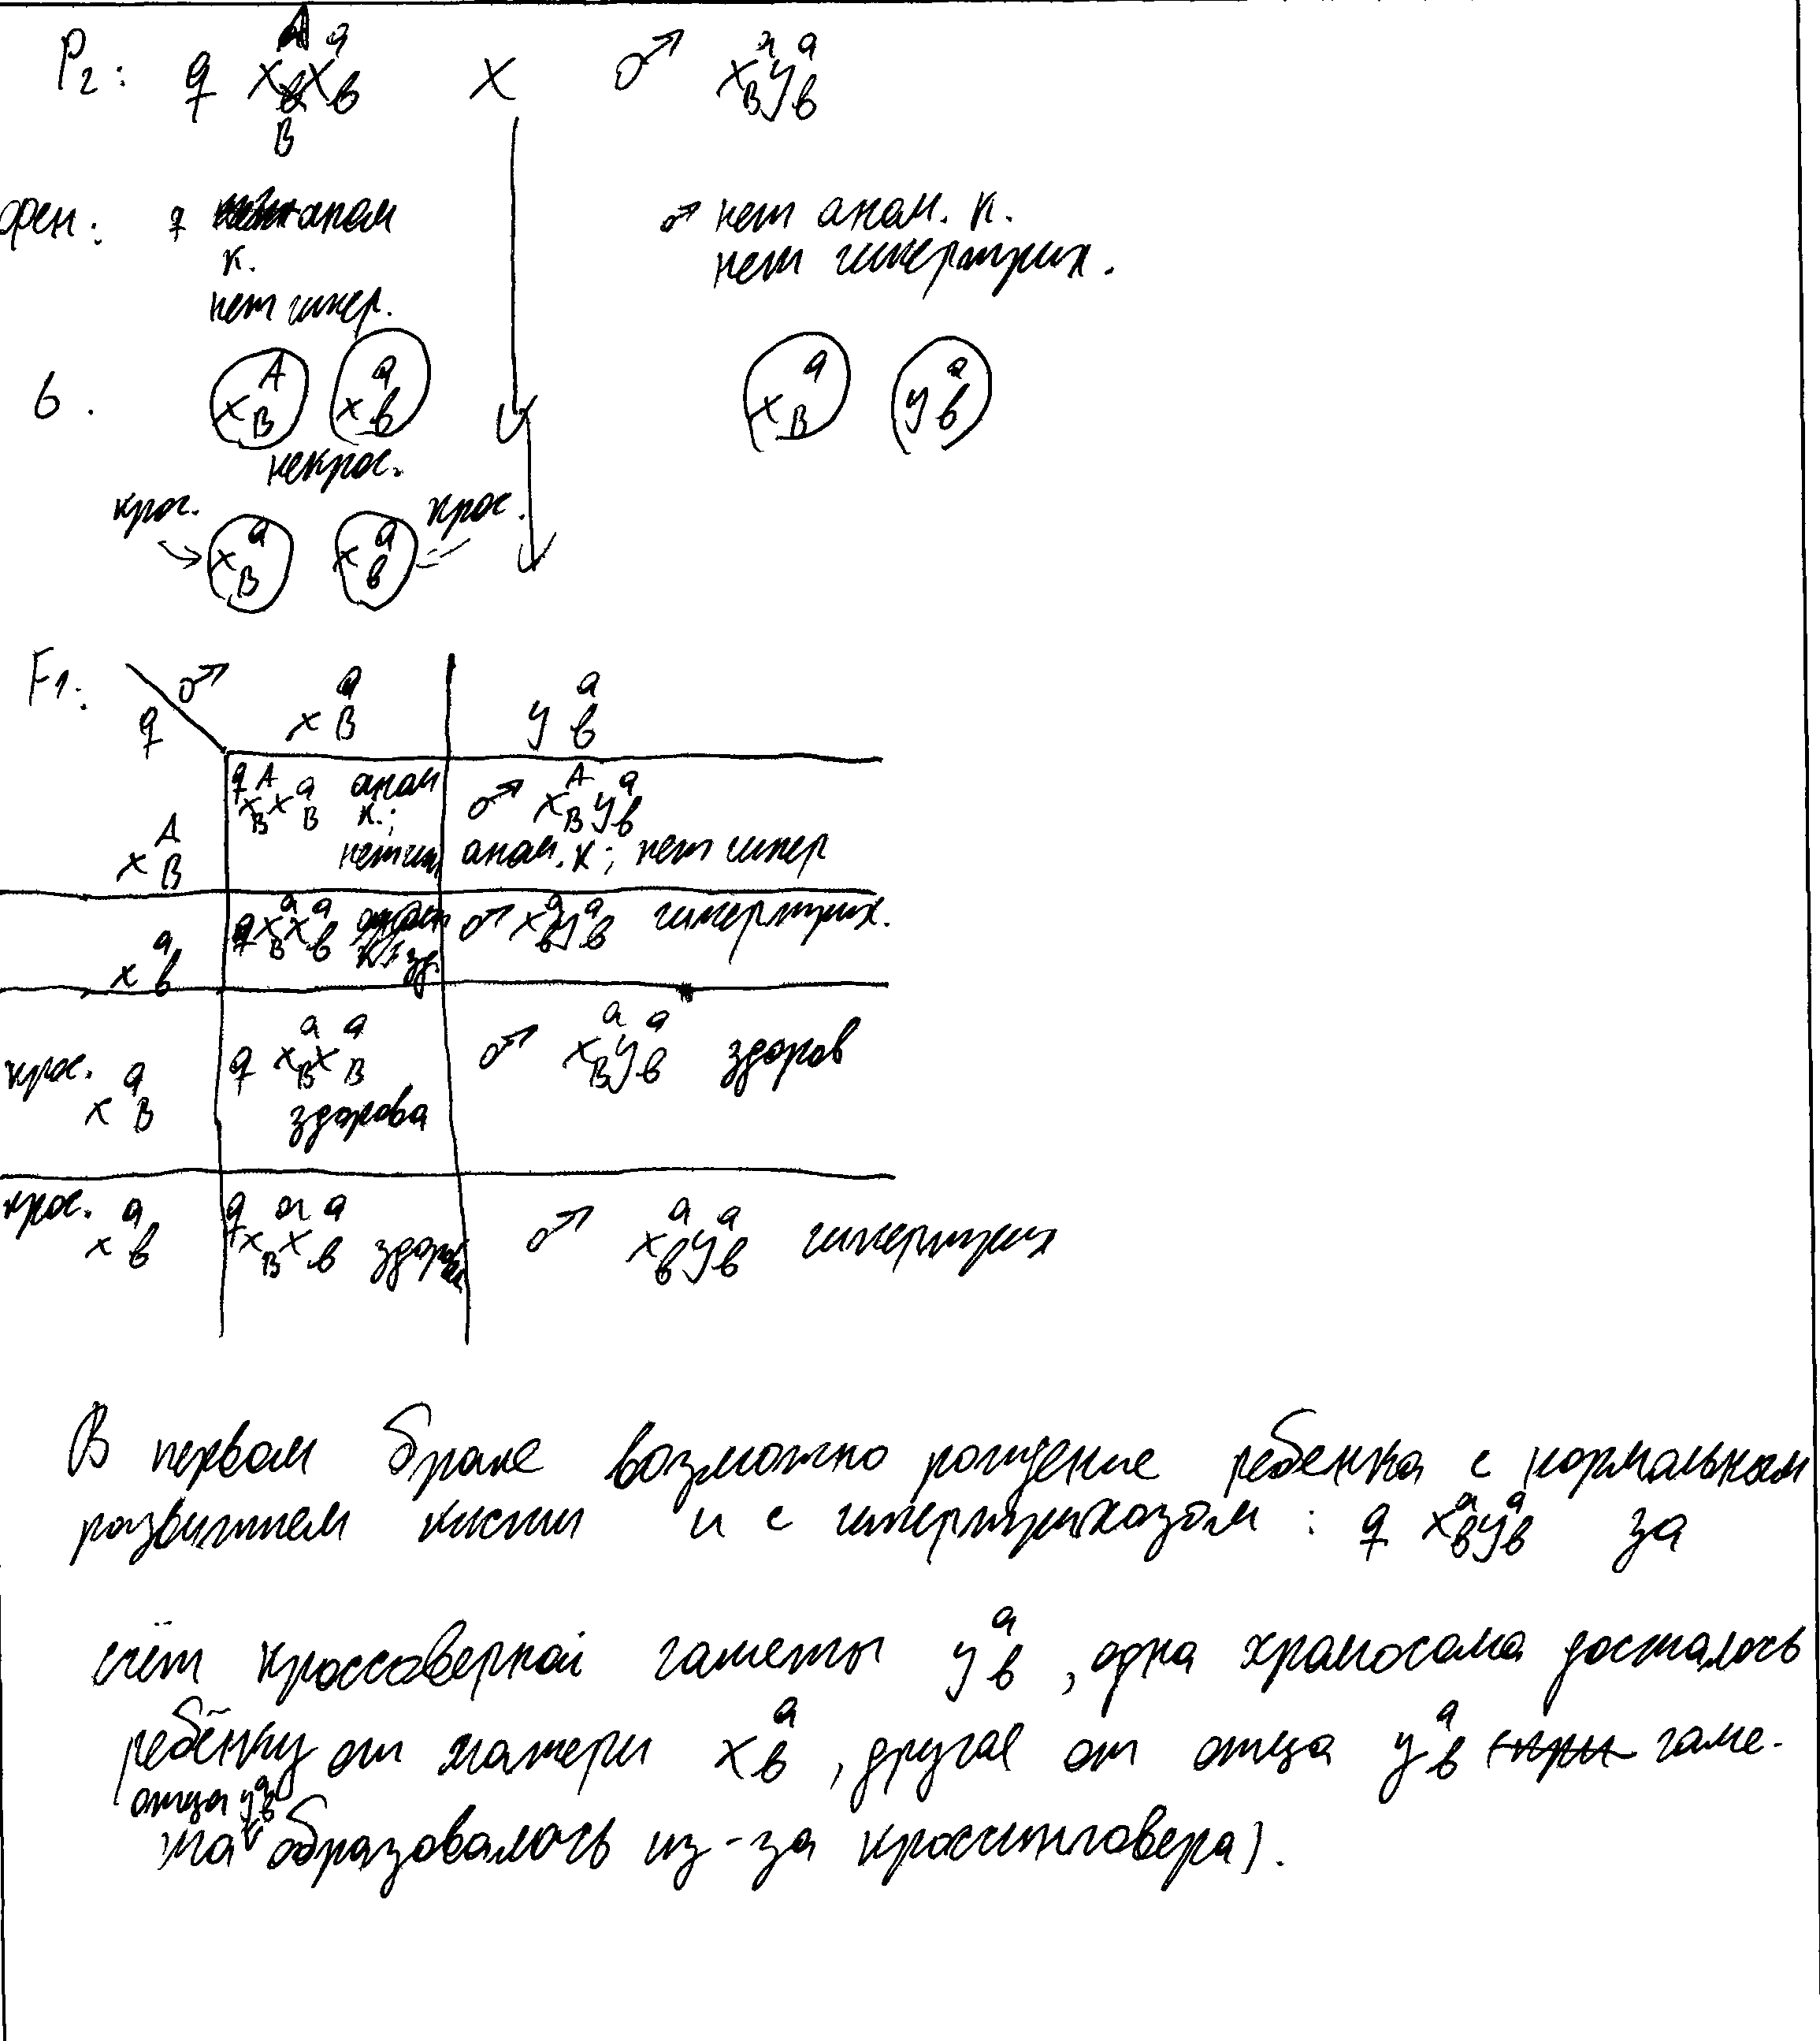 P2: ♀ X^A_B X^a_в × ♂ X^a_B У^a_в
фен: ♀ аном ♂ нет аном. к.
к. нет гипертрих.
нет гипер.
G. X^A_B X^a_в X^a_B У^a_в
некрос.
крос. крос.
X^a_B X^a_в
F1: ♀ ♂ X^a_B У^a_в
X^A_B ♀ X^A_B X^a_B аном к.; нет гип ♂ X^A_B У^a_в аном. к; нет гипер
X^a_в ♀ X^a_B X^a_в зд. ♂ X^a_в У^a_в гипертрих.
крос. X^a_B ♀ X^a_B X^a_B здорова ♂ X^a_B У^a_в здоров
крос. X^a_в ♀ X^a_B X^a_в ♂ X^a_в У^a_в гипертрих
В первом браке возможно рождение ребенка с нормальным
развитием кисти и с гипертрихозом : ♀ X^a_в У^a_в за
счёт кроссоверной гаметы У^a_в , одна хромосома досталось
ребёнку от матери X^a_в , другая от отца У^a_в (при гаме-
отца У^a_в
та образовалось из-за кроссинговера).